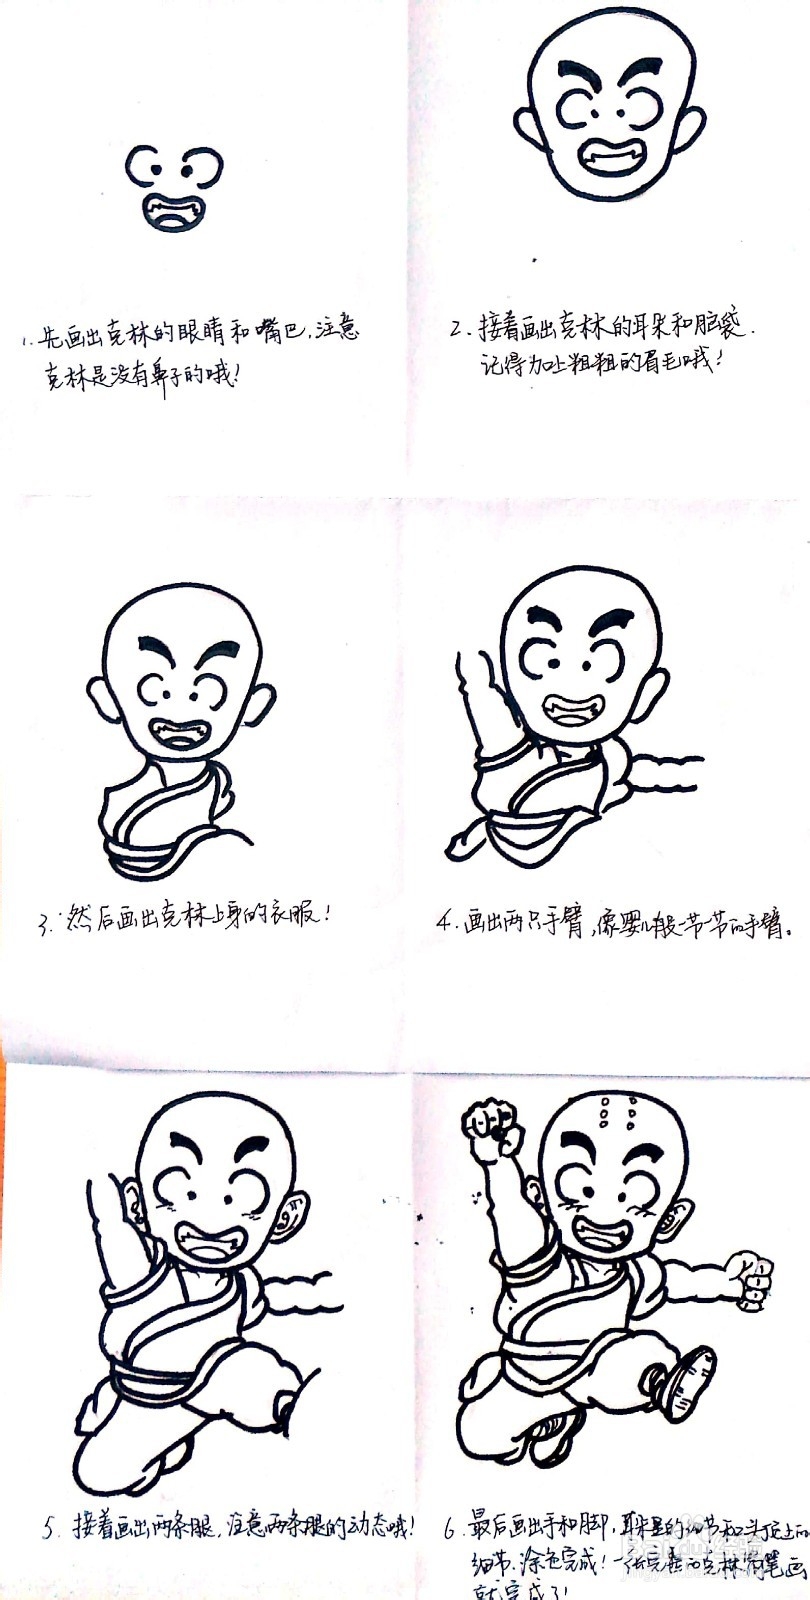 1. 先画出克林的眼睛和嘴巴,注意
克林是没有鼻子的哦!
2. 接着画出克林的耳朵和脑袋.
记得加上粗粗的眉毛哦!
3. 然后画出克林上身的衣服!
4. 画出两只手臂,像婴儿般一节一节的手臂。
5. 接着画出两条腿,注意两条腿的动态哦!
6. 最后画出手和脚,耳朵里的细节和头顶上的
细节.涂色完成!一张完整的克林简笔画
就完成了!
Baidu经验